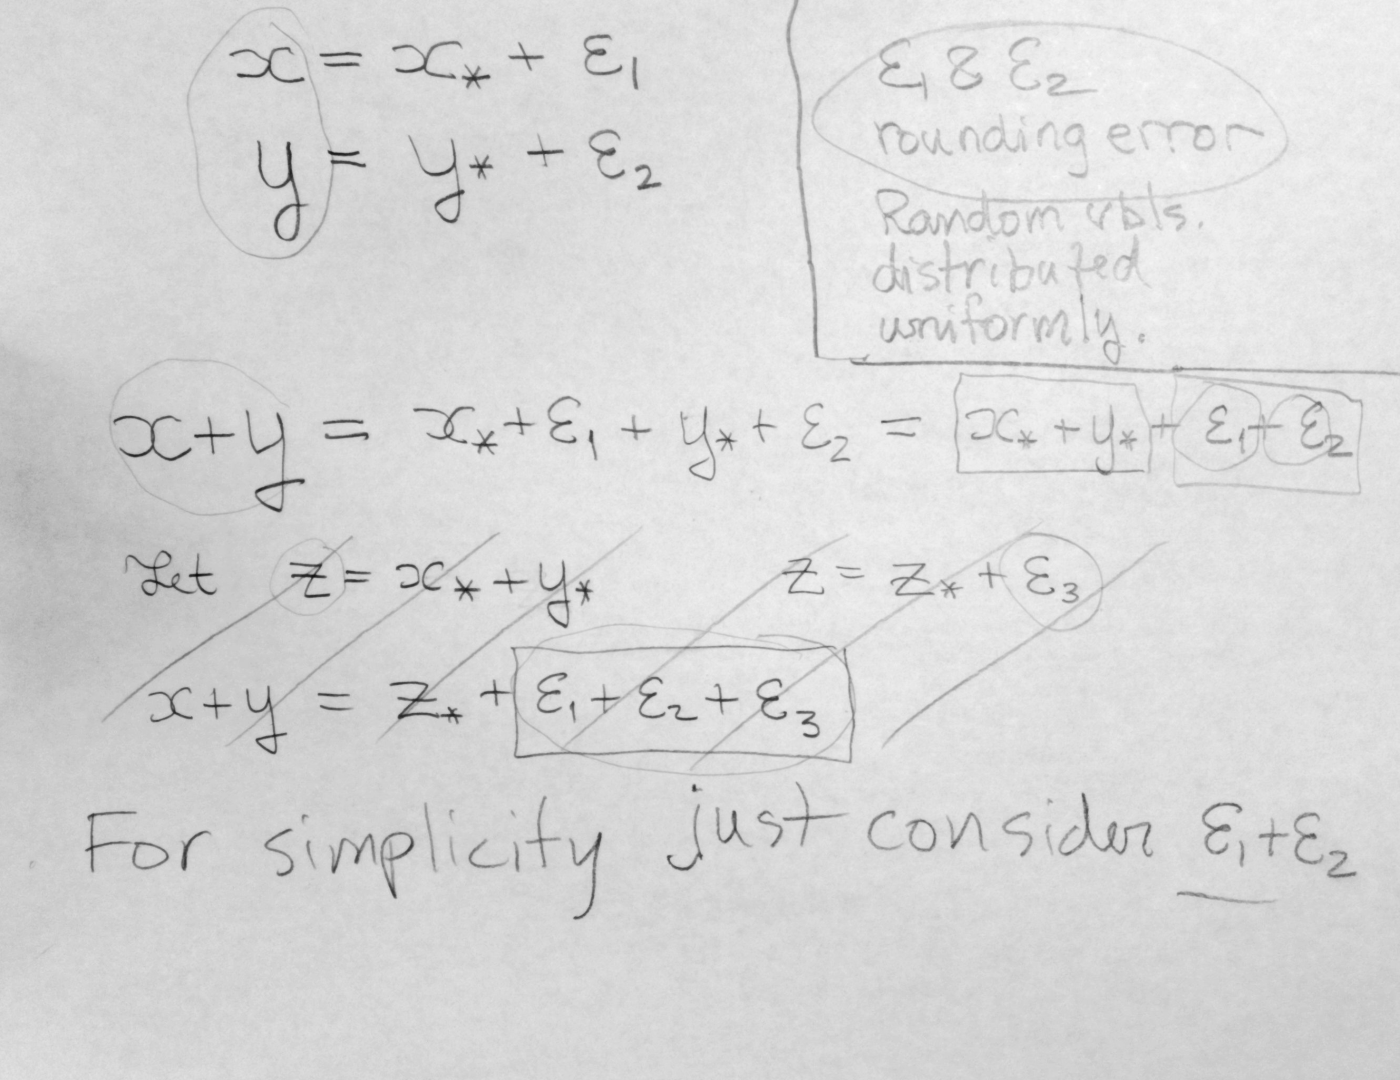 x = x* + ε₁
y = y* + ε₂
ε₁ & ε₂
rounding error
Random vbls.
distributed
uniformly.
x+y = x* + ε₁ + y* + ε₂ = x* + y* + ε₁ + ε₂
Let z = x* + y* z = z* + ε₃
x+y = z* + ε₁ + ε₂ + ε₃
For simplicity just consider ε₁+ε₂